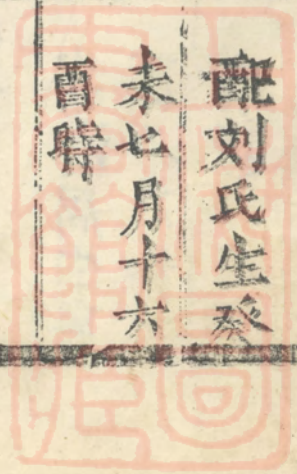 配刘氏生癸
未七月十六
酉時